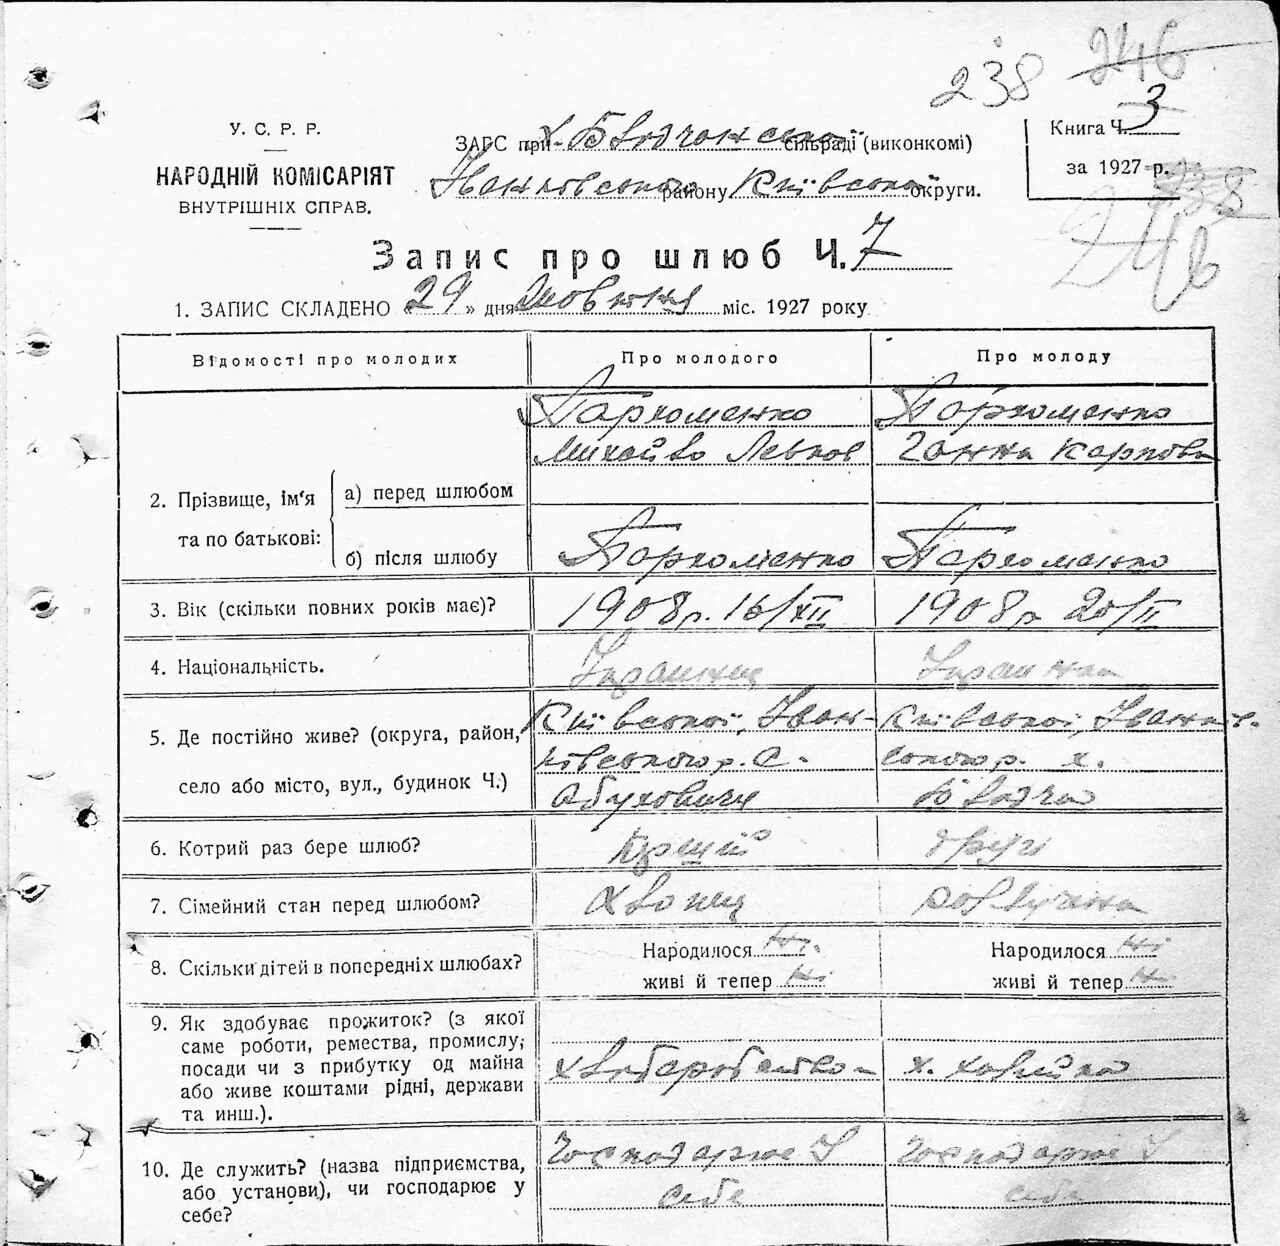 238 246
У. С. Р. Р.
НАРОДНІЙ КОМІСАРІЯТ
ВНУТРІШНІХ СПРАВ.
ЗАГС при х. сільраді (виконкомі)
Іванковського району Київської округи.
Книга Ч. 3
за 1927 р.
238
246
Запис про шлюб Ч. 7
1. ЗАПИС СКЛАДЕНО «29» дня Жовтня міс. 1927 року
Відомості про молодих Про молодого Про молоду
2. Прізвище, ім'я та по батькові:
а) перед шлюбом
Пархоменко Михайло Левков
Пархоменко Ганна Карпова
б) після шлюбу
Пархоменко Пархоменко
3. Вік (скільки повних років має)? 1908 р. 16/XII 1908 р 20/II
4. Національність. Українец Українка
5. Де постійно живе? (округа, район,
село або місто, вул., будинок Ч.)
Київської, Іван-
ківського р. с.
Обуховичи
Київської, Іванків-
ського р. х.
6. Котрий раз бере шлюб? перший другі
7. Сімейний стан перед шлюбом? хлопец розлучена
8. Скільки дітей в попередніх шлюбах?
Народилося Ні. Народилося Ні
живі й тепер Ні живі й тепер Ні
9. Як здобуває прожиток? (з якої
саме роботи, ремества, промислу,
посади чи з прибутку од майна
або живе коштами рідні, держави
та инш.).
хліборобство х. хазяйка
10. Де служить? (назва підприємства,
або установи), чи господарює у
себе?
господарює у
себе
господарює у
себе